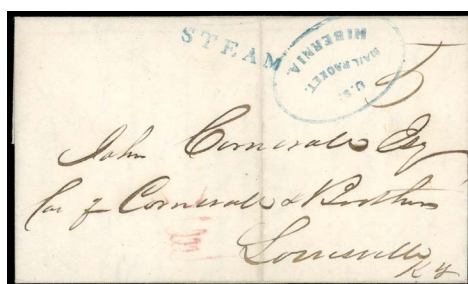 STEAM
U.S.
MAIL PACKET.
HIBERNIA.
5
John Cornwall Esq
Car of Cornwall & Brothers
Louisville
Ky